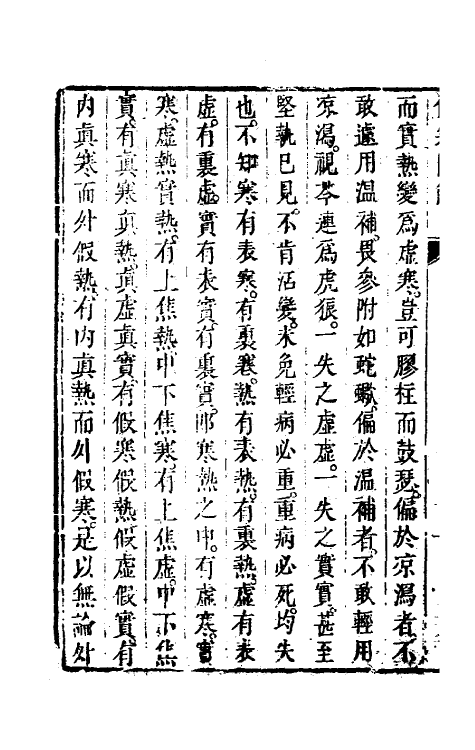 而實熱變爲虛寒。豈可膠柱而鼓瑟。偏於凉瀉者不
敢遽用温補。畏參附如蛇蠍。偏於温補者。不敢輕用
凉瀉。視芩連爲虎狼。一失之虛虛。一失之實實。甚至
堅執已見。不肯活變。未免輕病必重。重病必死。均失
也。不知寒有表寒。有裏寒。熱有表熱。有裏熱。虛有表
虛。有裏虛。實有表實。有裏實。卽寒熱之中。有虛寒。實
寒。虛熱實熱。有上焦熱中下焦寒。有上焦虛。中下焦
實。有眞寒眞熱。眞虛眞實。有假寒假熱假虛假實。有
内眞寒而外假熱。有内眞熱而外假寒。是以無論外